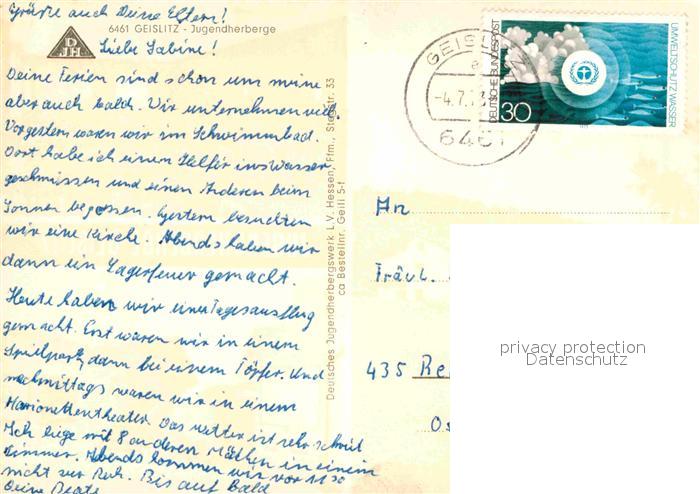 Grüße auch Deine Eltern!
6461 GEISLITZ - Jugendherberge
DJH
Liebe Sabine!
Deine Ferien sind schon um meine
aber auch bald. Wir unternehmen viel.
Vorgestern waren wir im Schwimmbad.
Dort habe ich einem Helfer ins Wasser
geschmissen und einen Anderen beim
Sonnen begossen. Gestern besuchten
wir eine Kirche. Abends haben wir
dann ein Lagerfeuer gemacht.
Heute haben wir einen Tagesausflug
gemacht. Erst waren wir in einem
Spielpark, dann bei einem Töpfer. Und
nachmittags waren wir in einem
Marionettentheater. Das Wetter ist sehr
Ich liege mit 8 anderen Mädchen in einem
Zimmer. Abends kommen wir vor 11 30
nicht zur Ruh. Bis auf Bald
Deine Beate
Deutsches Jugendherbergswerk L.V. Hessen, Ffm., 33
ca Bestellnr. Geili 5-f
GEIS
-4.7.
6461
DEUTSCHE BUNDESPOST
30
UMWELTSCHUTZ WASSER
An
Fräul.
435 Re
Os
privacy protection
Datenschutz